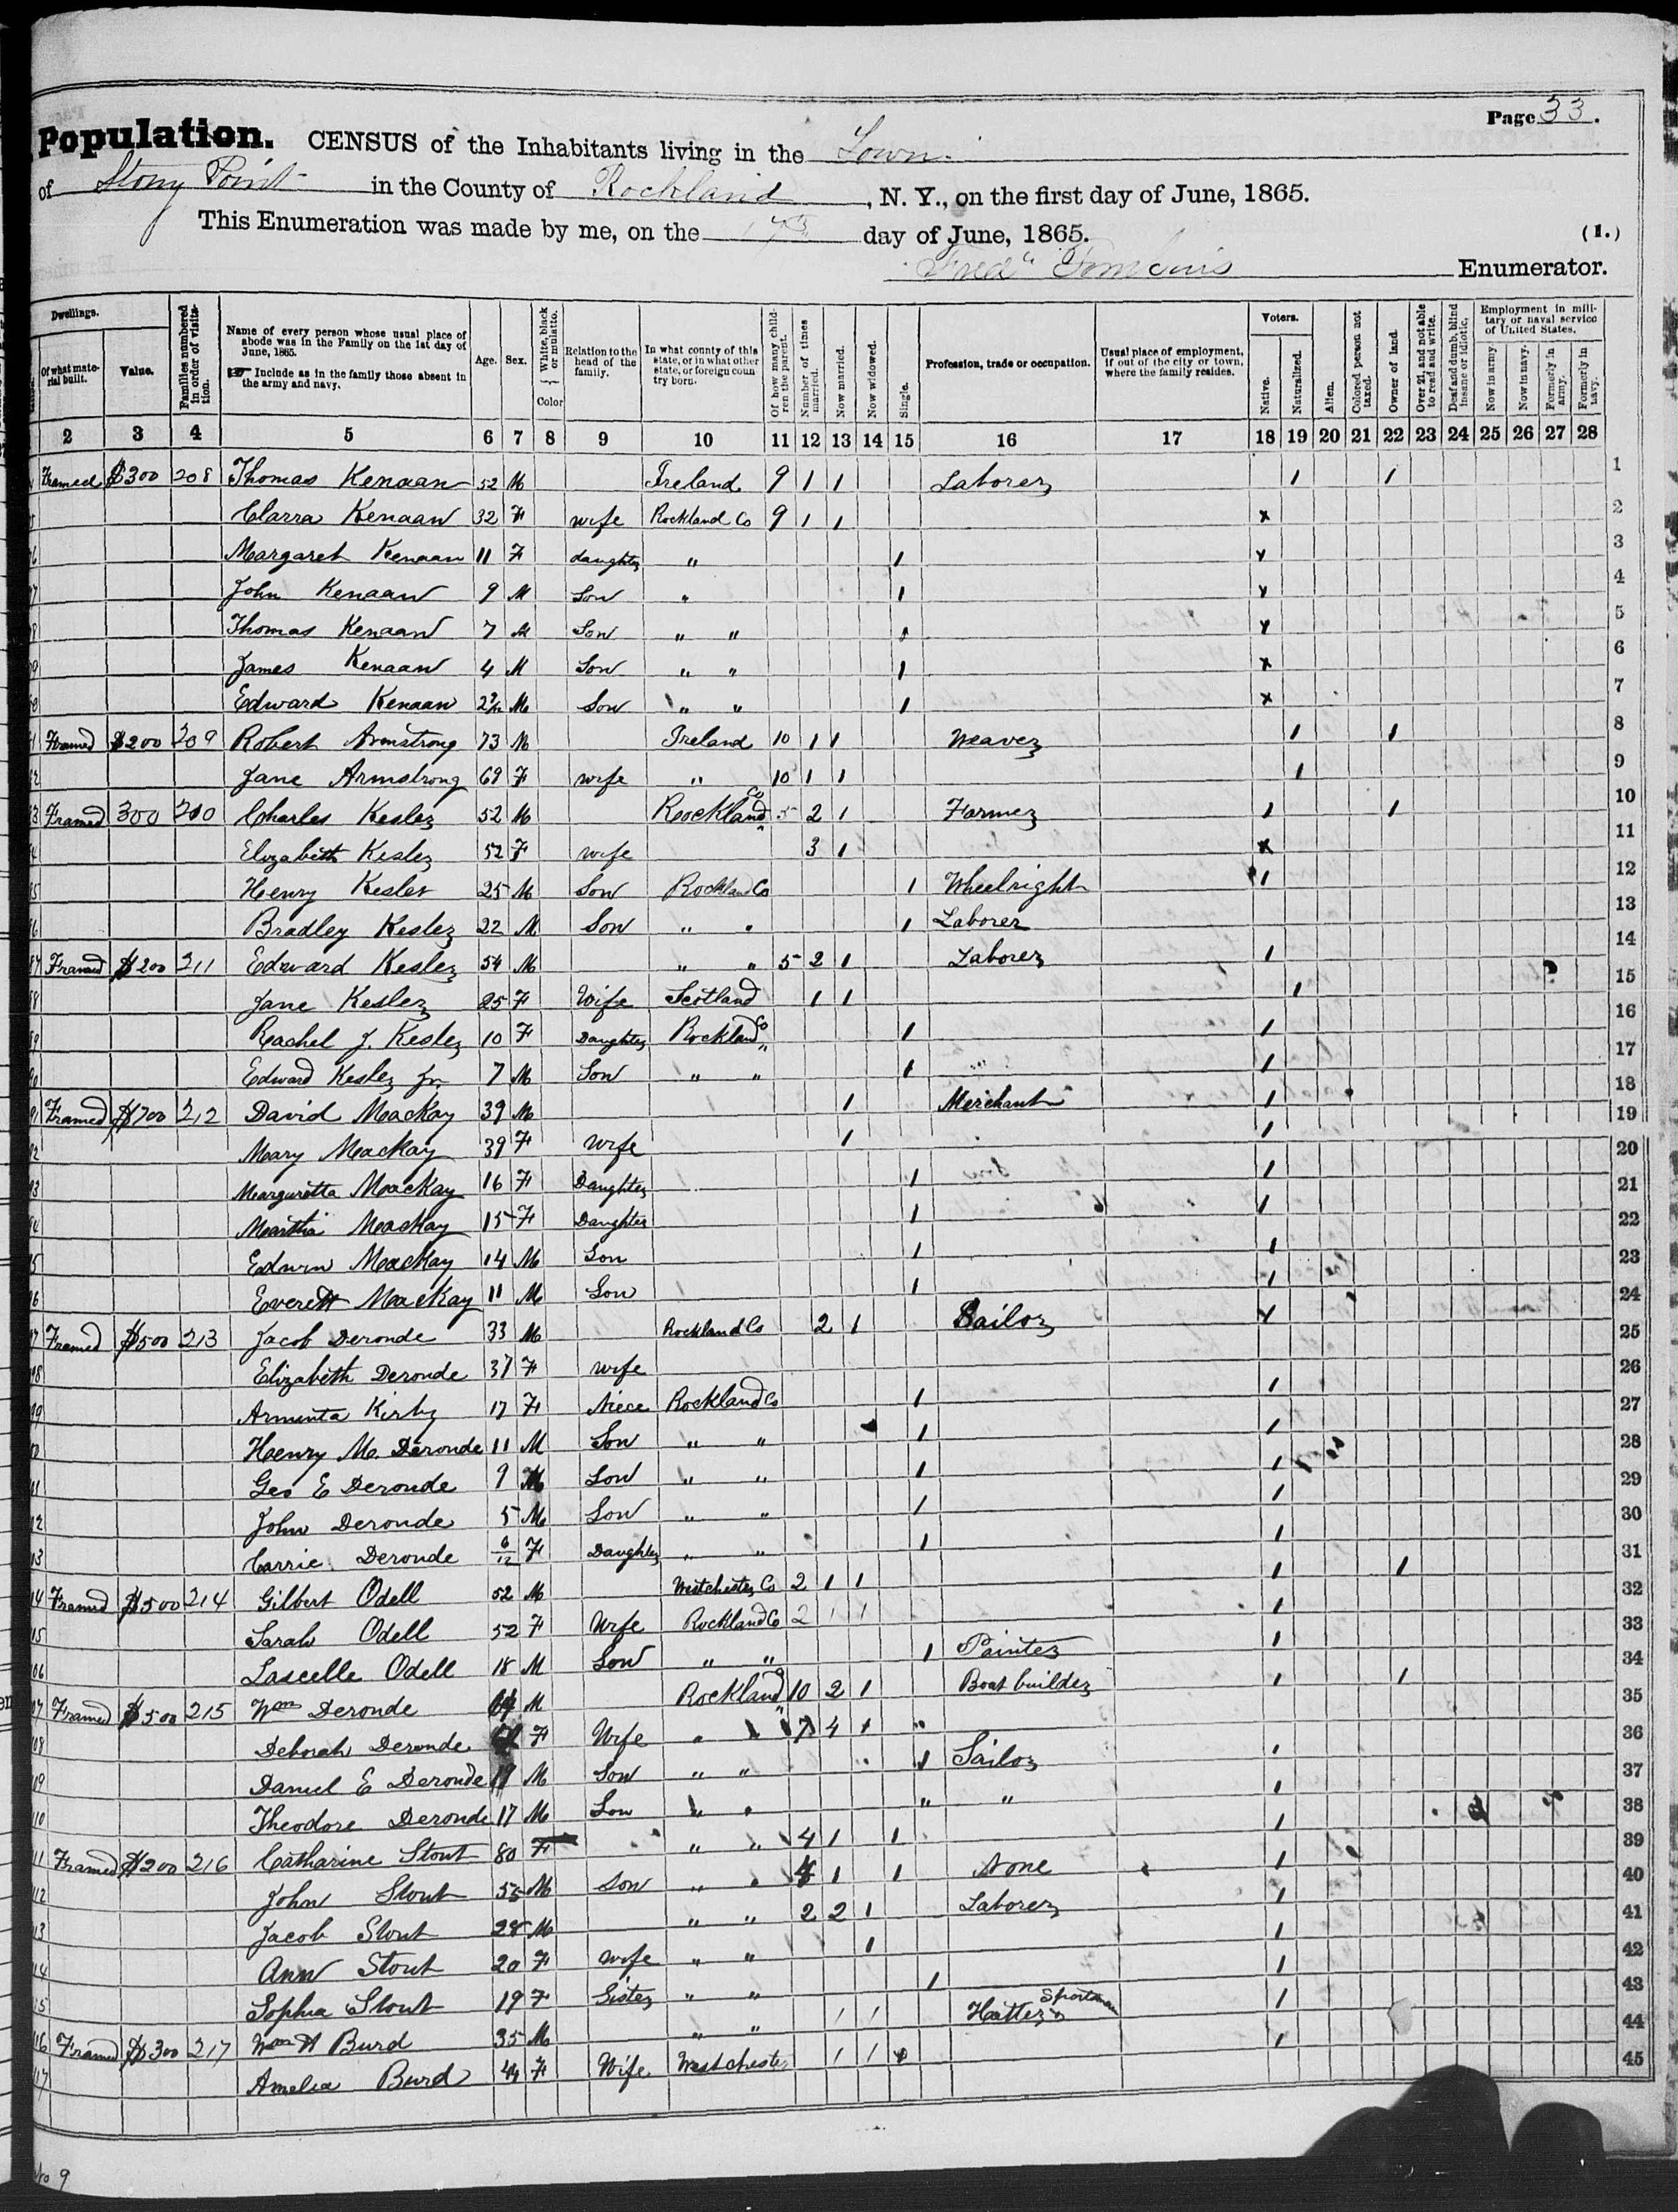 Page 33.
Population. CENSUS of the Inhabitants living in the Town
of Stony Point in the County of Rockland, N. Y., on the first day of June, 1865.
This Enumeration was made by me, on the day of June, 1865. (1.)
Enumerator.
Dwellings. Of what material built. Value. Families numbered in order of visitation. Name of every person whose usual place of abode was in the Family on the 1st day of June, 1865. Include as in the family those absent in the army and navy. Age. Sex. White, black or mulatto. Color Relation to the head of the family. In what county of this state, or in what other state, or foreign country born. Of how many children the parent. Number of times married. Now married. Now widowed. Single. Profession, trade or occupation. Usual place of employment, if out of the city or town, where the family resides. Voters. Native. Naturalized. Alien. Colored person not taxed. Owner of land. Over 21, and not able to read and write. Deaf and dumb, blind insane or idiotic. Employment in military or naval service of United States. Now in army. Now in navy. Formerly in army. Formerly in navy.
2 3 4 5 6 7 8 9 10 11 12 13 14 15 16 17 18 19 20 21 22 23 24 25 26 27 28
Framed $300 208 Thomas Kenaan 52 M Ireland 9 1 1 Laborer 1 1 1
Clarra Kenaan 32 F wife Rockland Co 9 1 1 x 2
Margaret Kenaan 11 F daughter " 1 x 3
John Kenaan 9 M Son " 1 x 4
Thomas Kenaan 7 M Son " " 1 x 5
James Kenaan 4 M Son " " 1 x 6
Edward Kenaan M Son " " 1 x 7
Framed $200 209 Robert Armstrong 73 M Ireland 10 1 1 Weaver 1 1 8
Jane Armstrong 69 F wife " 10 1 1 1 9
Framed 300 210 Charles Kesler 52 M Rockland Co 5 2 1 Farmer 1 1 10
Elizabeth Kesler 52 F wife 3 1 x 11
Henry Kesler 25 M Son Rockland Co 1 Wheelright 1 12
Bradley Kesler 22 M Son " " 1 Laborer 13
Framed $200 211 Edward Kesler 54 M " " 5 2 1 Laborer 1 14
Jane Kesler 25 F Wife Scotland 1 1 1 15
Rachel J. Kesler 10 F Daughter Rockland Co 1 1 16
Edward Kesler Jr 7 M Son " " 1 1 17
Framed $700 212 David MacKay 39 M 1 Merchant 1 18
Mary Mackay 39 F Wife 1 1 19
Margaretta MacKay 16 F Daughter 1 1 20
Martha MacKay 15 F Daughter 1 1 21
Edwin MacKay 14 M Son 1 1 22
Everett MacKay 11 M Son 1 1 23
Framed $500 213 Jacob Deronde 33 M Rockland Co 2 1 Sailor x 24
Elizabeth Deronde 37 F wife 25
Arminta Kirby 17 F Niece Rockland Co 1 1 26
Henry M. Deronde 11 M Son " " 1 1 27
Geo E Deronde 9 M Son " " 1 1 28
John Deronde 5 M Son " " 1 1 29
Carrie Deronde 6/12 F Daughter " " 1 1 30
Framed $500 214 Gilbert Odell 52 M Westchester Co 2 1 1 1 1 31
Sarah Odell 52 F Wife Rockland Co 2 1 1 1 32
Lascelle Odell 18 M Son " " 1 Painter 1 33
Framed $500 215 Wm Deronde M Rockland 10 2 1 Boat builder 1 1 34
Deborah Deronde F Wife " 7 4 1 35
Daniel E Deronde 19 M Son " " 1 Sailor 1 36
Theodore Deronde 17 M Son " " " " 1 37
Framed $200 216 Catharine Stout 80 F " " 4 1 1 1 38
John Stout 55 M Son " " 1 1 None 1 39
Jacob Stout 28 M " " 2 2 1 Laborer 1 40
Ann Stout 20 F wife " " 1 1 41
Sophia Stout 19 F Sister " " 1 1 42
Framed $300 217 Wm H Burd 35 M " " 1 1 Hatter 1 43
Amelia Burd 44 F Wife Westchester 1 1 1 44
45
No 9